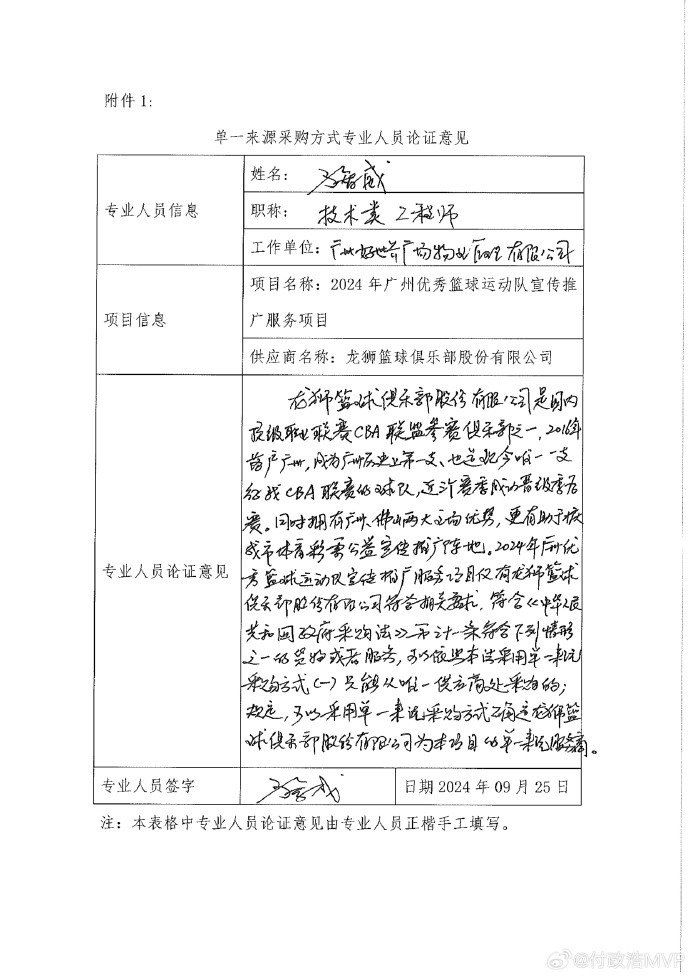 附件 1:
单一来源采购方式专业人员论证意见
专业人员信息
姓名:
职称: 技术类 工程师
工作单位: 广州好世界广场物业管理有限公司
项目信息
项目名称: 2024 年广州优秀篮球运动队宣传推
广服务项目
供应商名称: 龙狮篮球俱乐部股份有限公司
专业人员论证意见
龙狮篮球俱乐部股份有限公司是国内
顶级职业联赛CBA联盟参赛俱乐部之一, 2016年
落户广州, 成为广州历史上第一支、也是迄今唯一一支
征战CBA联赛的球队, 近几赛季成功晋级季后
赛。同时拥有广州、佛山两大主场优势, 更有助于扩
城市体育彩票公益宣传推广阵地。2024年广州优
秀篮球运动队宣传推广服务项目仅有龙狮篮球
俱乐部股份有限公司符合相关要求, 符合《中华人民
共和国政府采购法》第三十一条符合下列情形
之一的货物或者服务, 可以依照本法采用单一来源
采购方式(一)只能从唯一供应商处采购的;
规定, 可以采用单一来源采购方式确定龙狮篮
球俱乐部股份有限公司为本项目的单一来源服务商。
专业人员签字
日期 2024 年 09 月 25 日
注: 本表格中专业人员论证意见由专业人员正楷手工填写。
@付政浩MVP